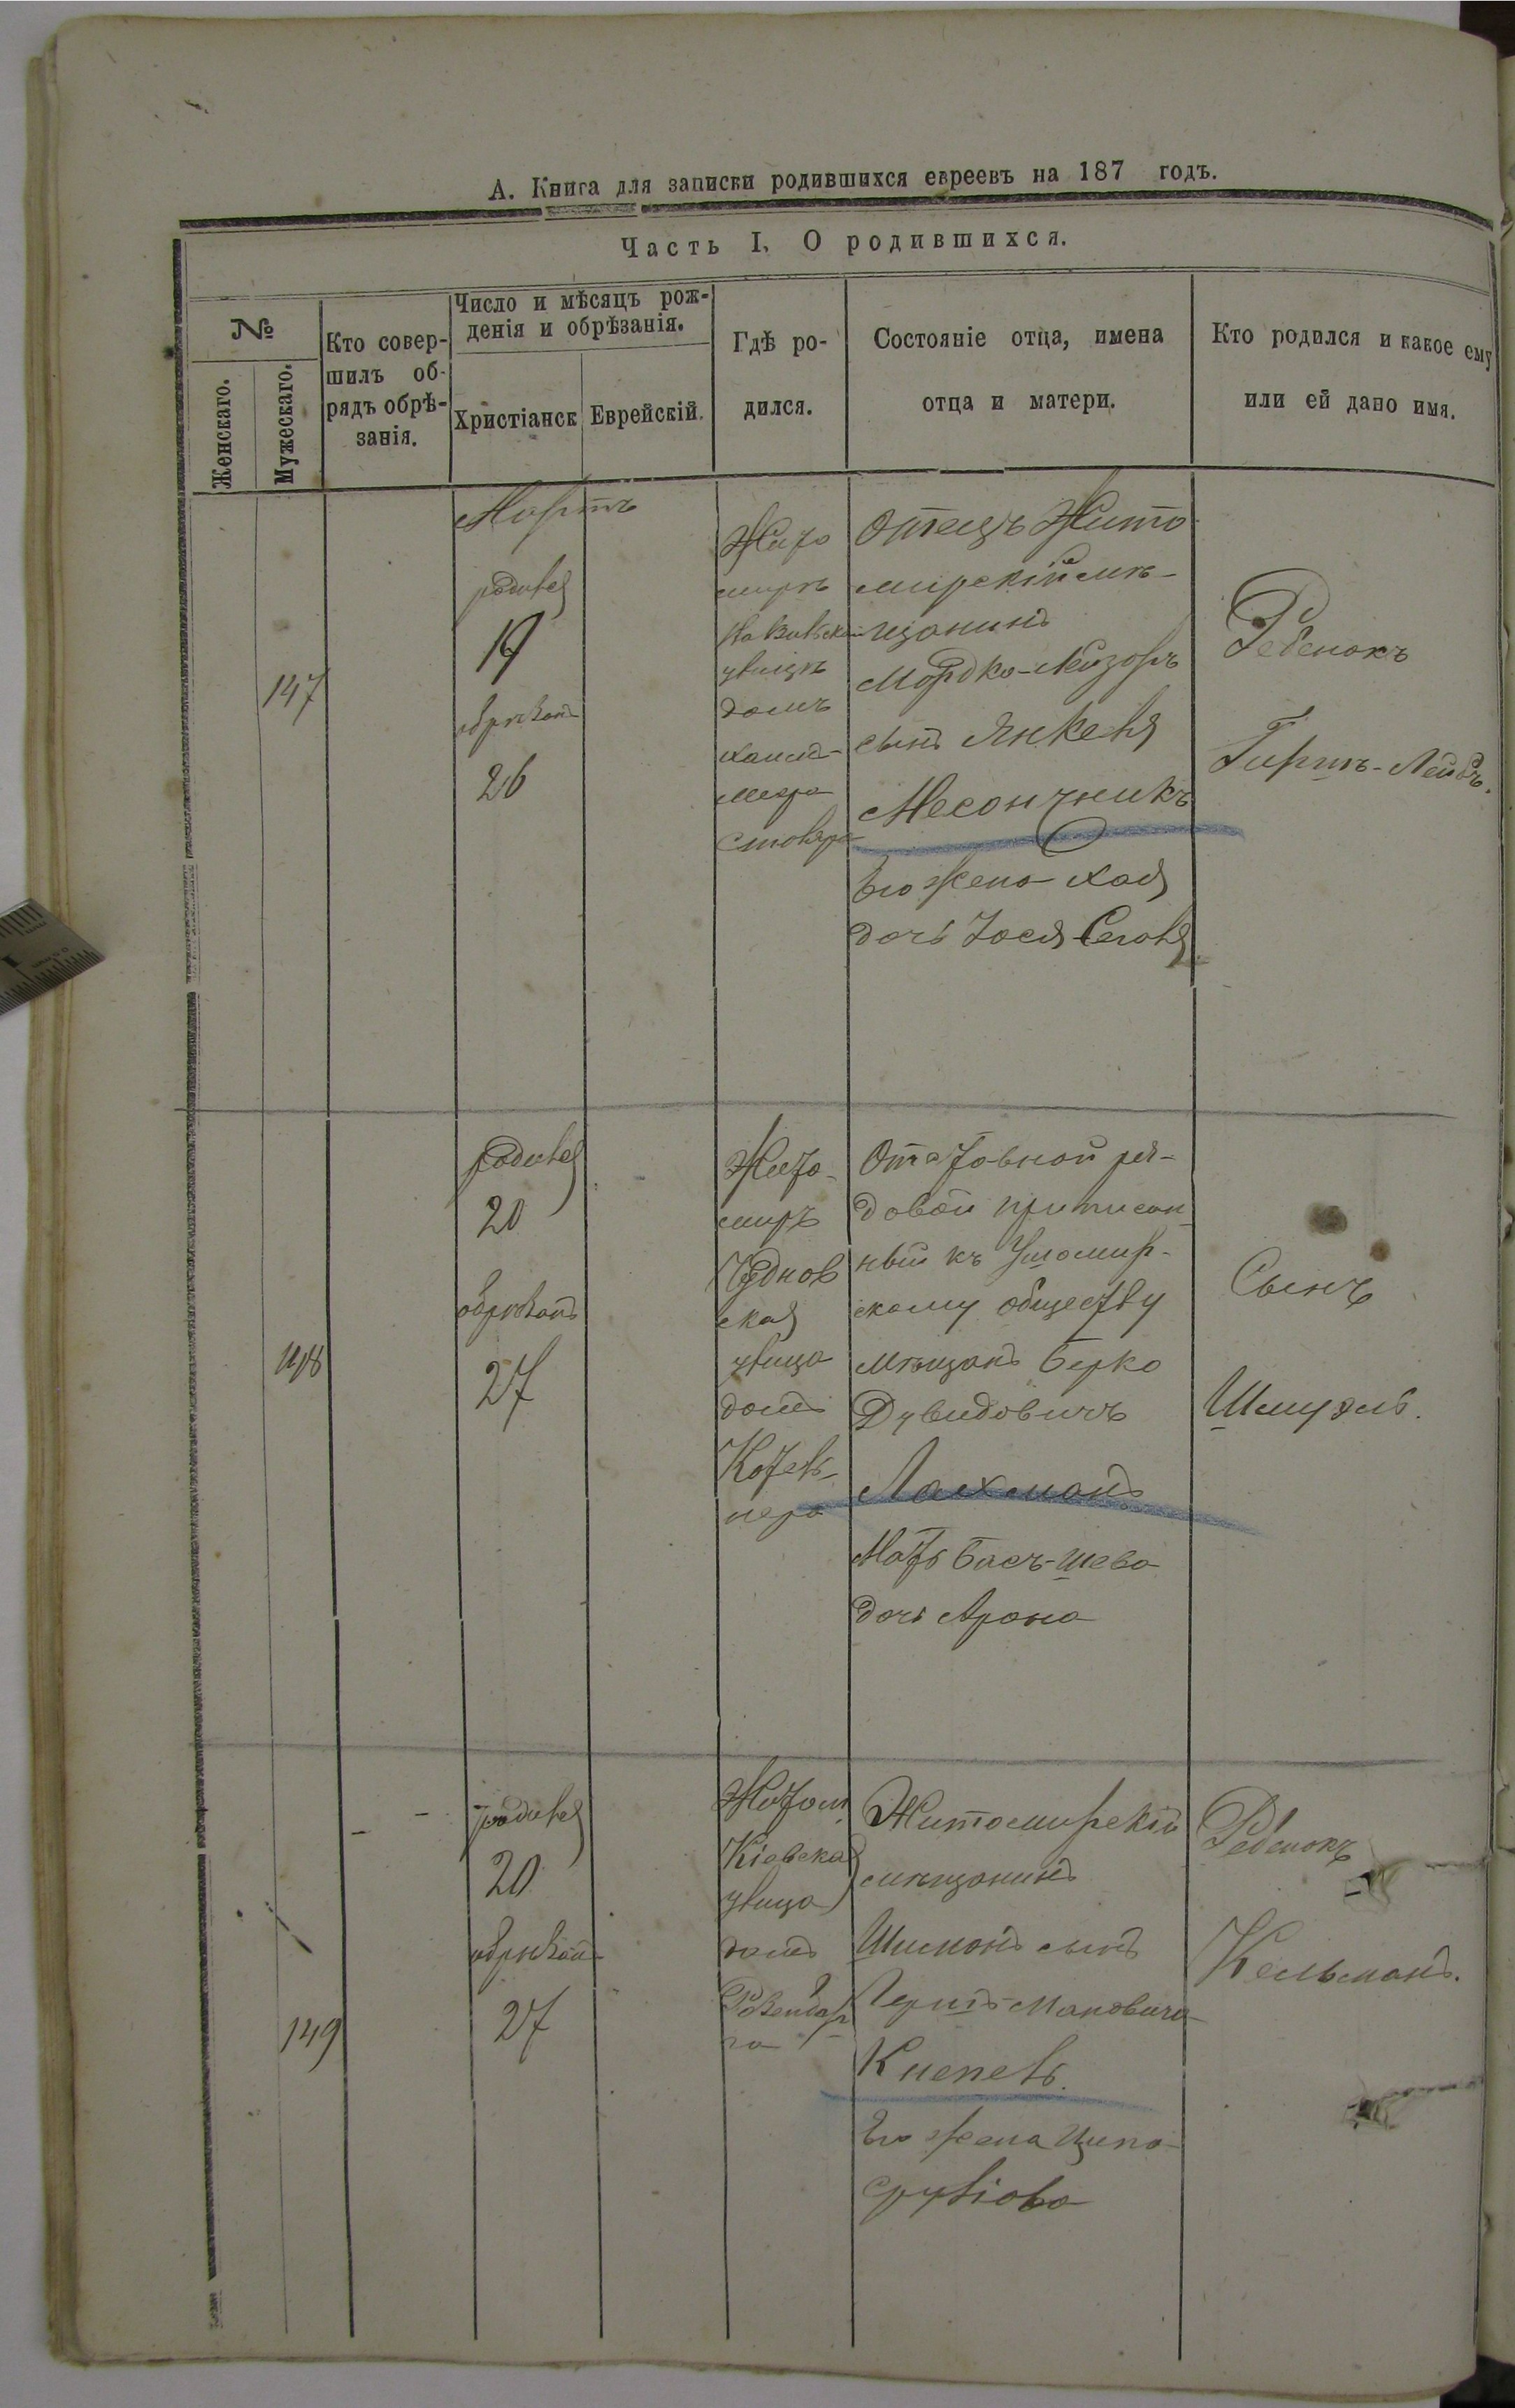 А. Книга для записки родившихся евреевъ на 187 годъ.
Часть I. О родившихся.
№
Женскаго.
Мужескаго.
Кто совер-
шилъ об-
рядъ обрѣ-
занія.
Число и мѣсяцъ рож-
денія и обрѣзанія.
Христіанск
Еврейскій.
Гдѣ ро-
дился.
Состояніе отца, имена
отца и матери.
Кто родился и какое ему
или ей дано имя.
147
Мартъ
родился
19
обрѣзанъ
26
Жито
мирѣ
улицѣ
домъ
Столяра
Отецъ Жито
мирскій мѣ-
щанинъ
Мордко-Лейзоръ
сынъ Янкеля
Месончникъ
Его жена Хая
дочь Іося
Ребенокъ
Гиршъ-Лейбъ.
148
родился
20
обрѣзанъ
27
Жито-
миръ
Чуднов
ская
улица
домъ
Отставной ря-
довой приписан
ный къ Ушомир-
скому обществу
мѣщанъ Берко
Дувидовичъ
Лахманъ
Мать Бась-Шева
дочь Арона
Сынъ
Шмуэль.
149
родился
20
обрѣзанъ
27
Житом.
Кіевская
улица
домъ
Житомирскій
мѣщанинъ
Шимонъ сынъ
Гершъ-Мановича
Кнепель.
Его жена Ципа
Сруліова
Ребенокъ
Кельманъ.